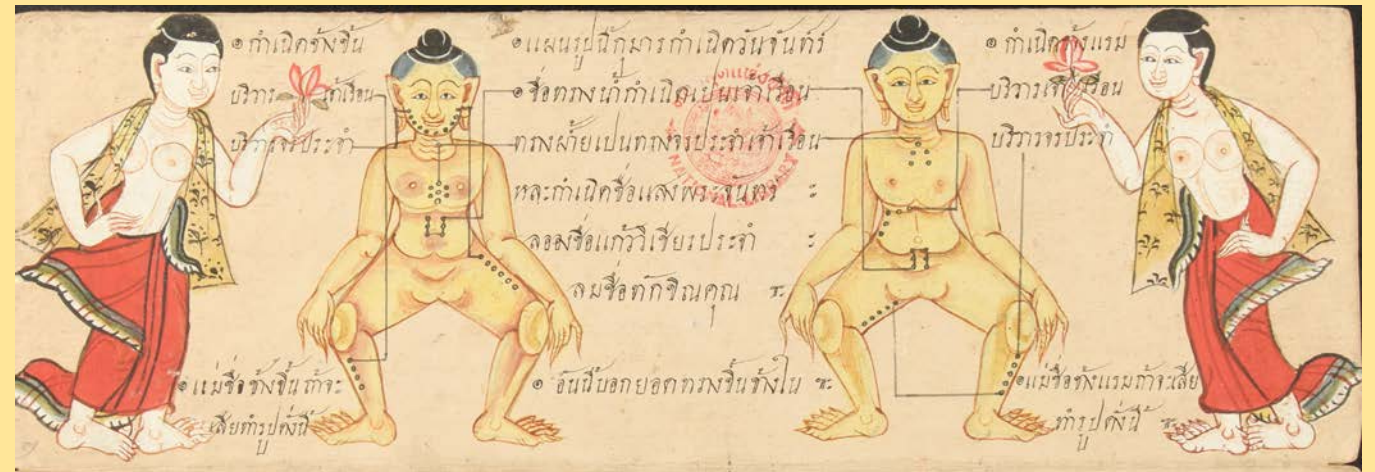 ๏ กำเนิดข้างขึ้น
บริวาร เจ้าเรือน
บริวารจรประจำ
๏ แผนรูปนี้กุมารกำเนิดวันจันทร์
๏ ชื่อทรางน้ำกำเนิดเปนเจ้าเรือน
ทรางฝ้ายเปนทรางจรประจำเจ้าเรือน
หละกำเนิดชื่อแสงพระจันทร ะ
ลอองชื่อแก้ววิเชียรประจำ ะ
ลมชื่อทักขิณคุณ ะ
๏ อันนี้บอกยอดทรางขึ้นข้างใน ะ
๏ กำเนิดข้างแรม
บริวารเจ้าเรือน
บริวารจรประจำ
๏ แม่ซื้อข้างขึ้นถ้าจะ
เสียทำรูปดั่งนี้
๏ แม่ซื้อข้างแรมถ้าจะเสีย
ทำรูปดั่งนี้ ะ